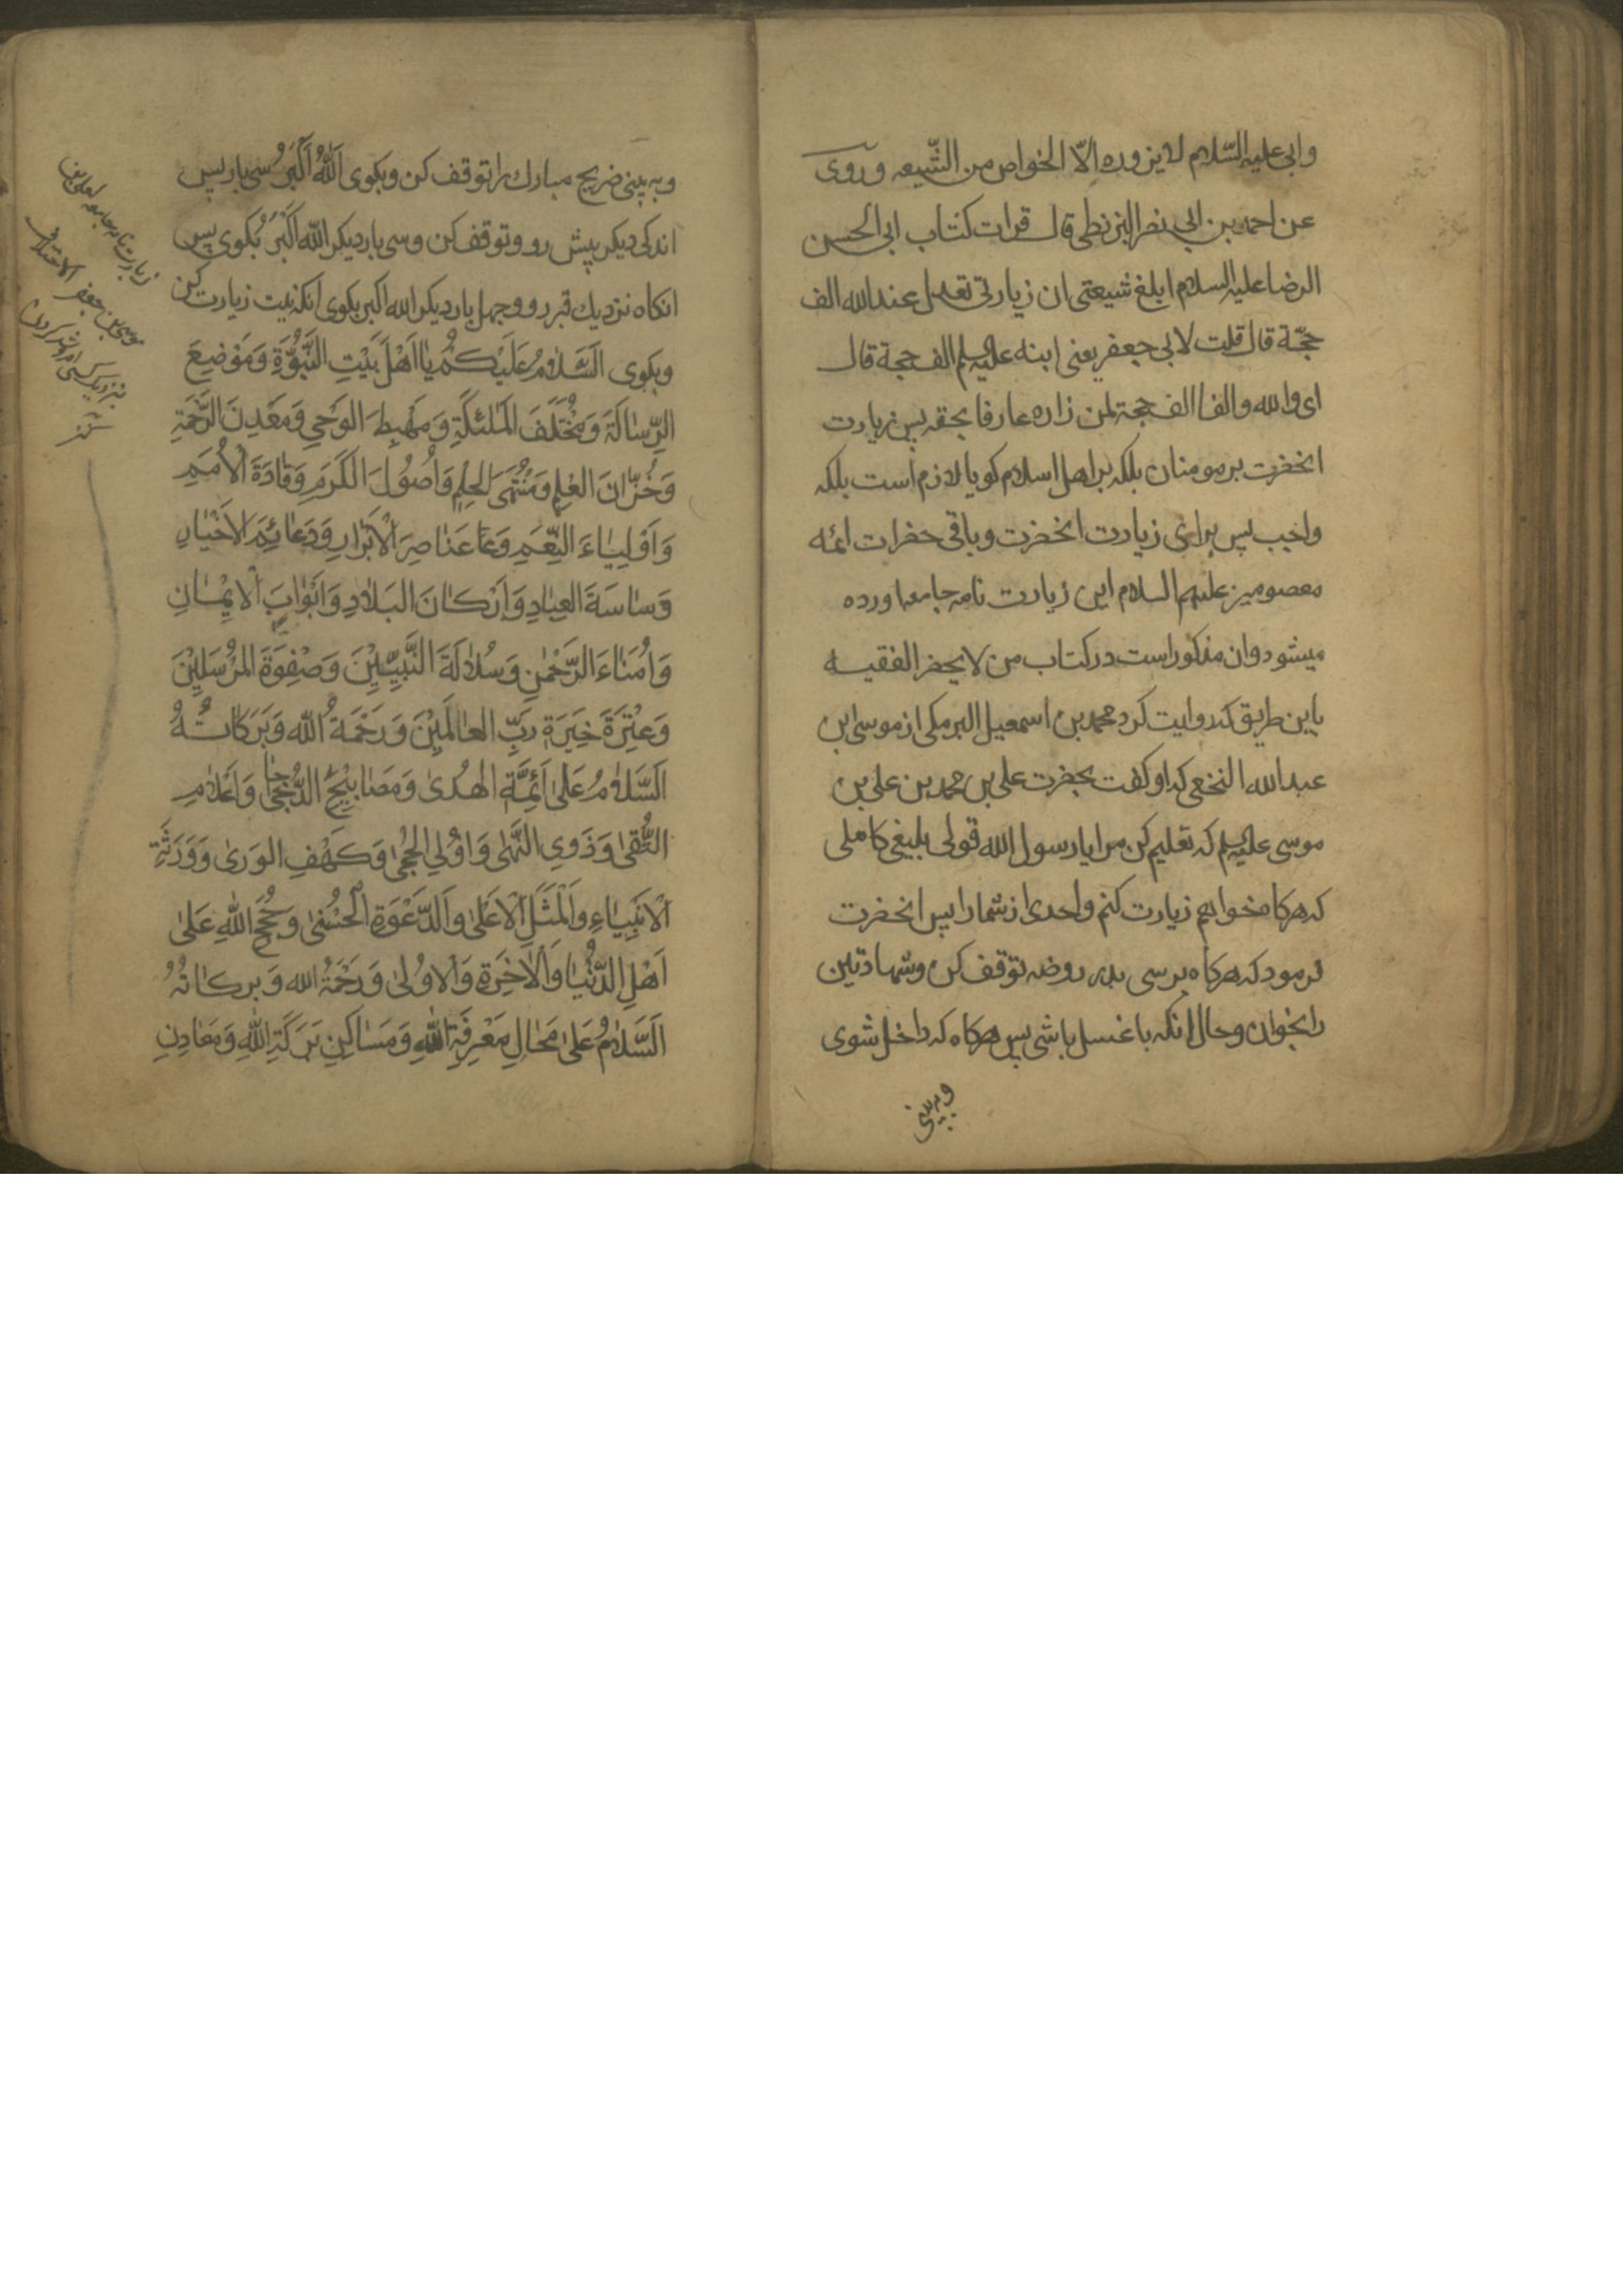 وابی علیه السّلام لا یزوره الّا الخواص من الشّیعه و روی
عن احمد بن ابی نصر البزنطی قال قرات کتاب ابی الحسن
الرضا علیه السلام ابلغ شیعتی ان زیارتی تعدل عند الله الف
حجّة قال قلت لابی جعفر یعنی ابنه علیه السلم الف حجة قال
ای والله والفا الف حجة لمن زاره عارفا بحقه پس زیارت
انحضرت بر مومنان بلکه بر اهل اسلام کویا لازم است بلکه
واجب پس برای زیارت انحضرت و باقی حضرات ائمه
معصومین علیهم السلام این زیارت نامه جامعه اورده
میشود وان مذکور است در کتاب من لا یحضر الفقیه
باین طریق که روایت کرد محمد بن اسمعیل البرمکی از موسی ابن
عبدالله النخعی که او کفت بحضرت علی بن محمد بن علی بن
موسی علیه السلم که تعلیم کن مرا یا رسول الله قولی بلیغی کاملی
که هرکاه خواهم زیارت کنم واحدی از شما را پس انحضرت
فرمود که هرکاه برسی بدر روضه توقف کن وشهادتین
را بخوان وحال انکه با غسل باشی پس هرکاه که داخل شوی
وبه بینی
وبه بینی ضریح مبارك را توقف کن وبکوی اَللّٰهُ اَکْبَرُ سی بار پس
اندکی دیکر پیش رو وتوقف کن وسی بار دیکر اللّه اَکْبَرُ بکوی پس
انکاه نزدیك قبر رو وچهل بار دیکر الله اکبر بکوی انکه نیت زیارت کن
وبکوی اَلسَّلامُ عَلَیْکُمْ یٰا اَهْلَ بَیْتِ النَّبُوَّةِ وَمَوْضِعَ
الرِّسٰالَةَ وَمُخْتَلَفَ الْمَلٰئِکَةِ وَمَهْبِطَ الوَحْیِ وَمَعْدِنَ الرَّحْمَةِ
وَخُزّانَ العِلْمِ وَمُنْتَهَی الحِلْمِ وَاُصُولَ الکَرَمِ وَقٰادَةَ الاُمَمِ
وَاَوْلِیٰاءَ النِّعَمِ وَعَنٰاصِرَ الْاَبْرٰارِ وَدَعٰائِمَ الاَخْیٰارِ
وَسٰاسَةَ العِبٰادِ وَاَرْکٰانَ البَلٰادِ وَاَبْوٰابَ الْایْمٰانِ
وَاُمَنٰاءَ الرَّحْمٰنِ وَسُلٰالَةَ النَّبِیّیْنَ وَصَفْوَةَ المُرْسَلِیْنَ
وَعِتْرَةَ خِیَرَةِ رَبِّ العٰالَمِیْنَ وَرَحْمَةُ اللّٰه وَبَرَکٰاتُهُ
اَلسَّلٰامُ عَلیٰ اَئِمَّةِ الهُدیٰ وَمَصٰابِیْحِ الدُّجیٰ وَاَعْلٰامِ
التُّقیٰ وَذَوِی النُّهیٰ وَاُولِی الحِجیٰ وَکَهْفِ الوَریٰ وَوَرَثَةِ
الْاَنْبِیٰاءِ وَالْمَثَلِ الْاَعْلیٰ وَالدَّعْوَةِ الْحُسْنیٰ وَحُجَجِ اللّٰهِ عَلیٰ
اَهْلِ الدُّنْیٰا وَالْاٰخِرَةِ وَالاُولیٰ وَرَحْمَةُ الله وَبَرکٰاتُهُ
اَلسَّلٰامُ عَلیٰ مَحٰالِ مَعْرِفَةِ اللّٰهِ وَمَسٰاکِنِ بَرَکَةِ اللّٰهِ وَمَعٰادِنِ
زیارت نامه جامعه
موسی بن جعفر